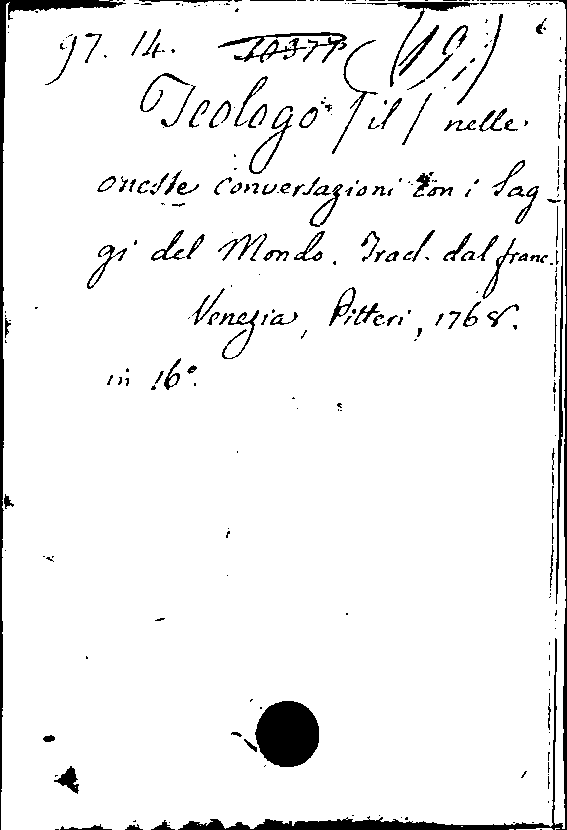 97. 14. 10377 (19,)
Teologo (il) nelle
oneste conversazioni con i Sag-
gi del Mondo. Trad. dal franc.
Venezia, Pitteri, 1768.
in 16°.